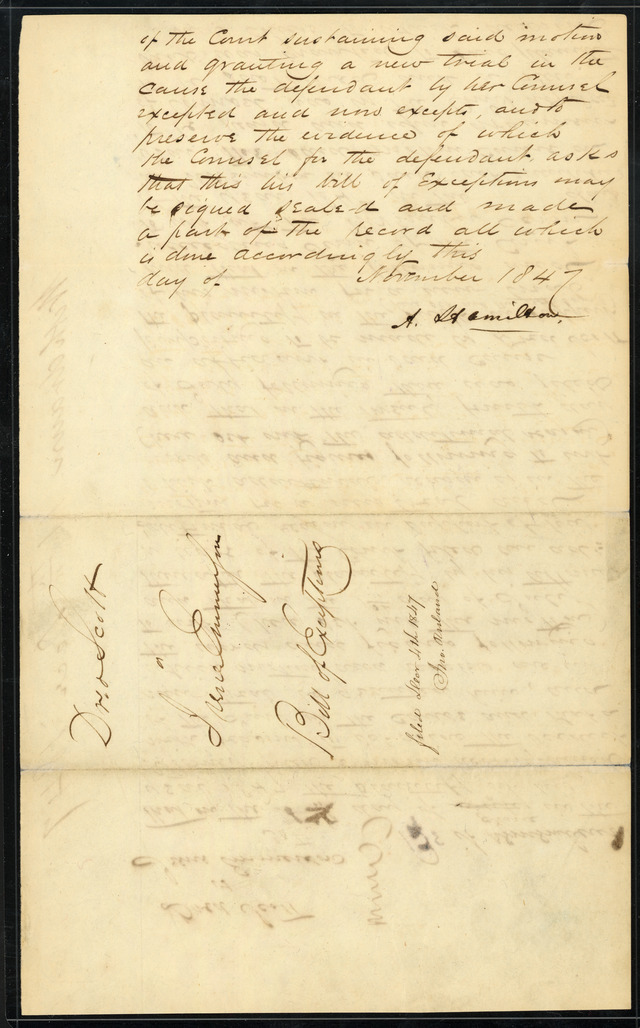 of the Court sustaining said motion
and granting a new trial in the
cause the defendant by her Counsel
excepted and now excepts, and to
preserve the evidence of which
the Counsel for the defendant asks
that this his bill of Exceptions may
be signed sealed and made
a part of the record all which
is done accordingly this
day of November 1847
A. Hamilton.
Dred Scott
vs
Irene Emmerson
Bill of Exceptions
filed Decr 4th 1847
Jno. Ruland